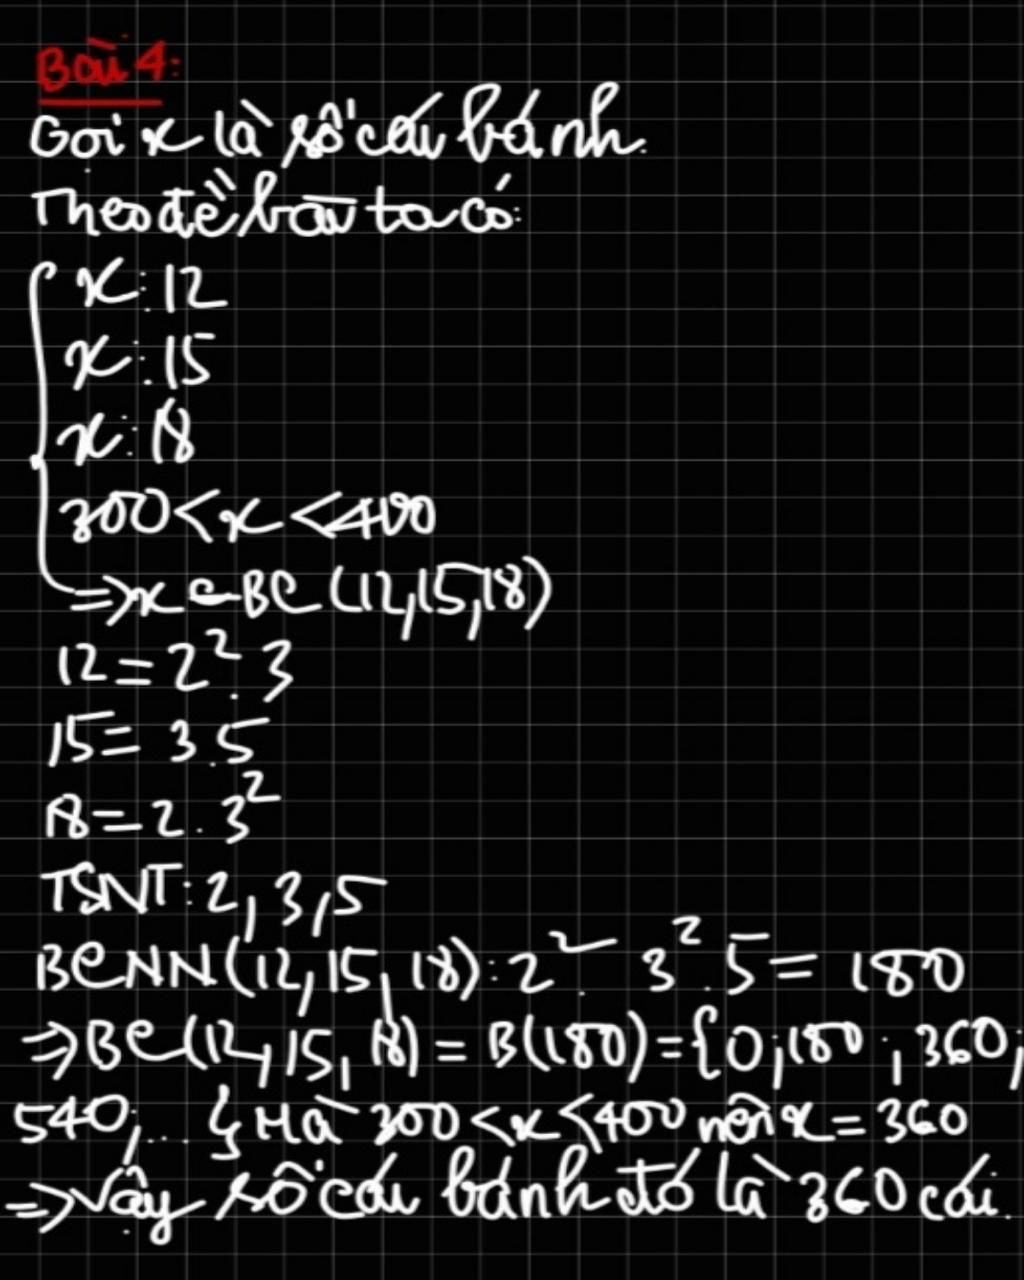 Bài 4:
Gọi x là số cái bánh.
Theo đề bài ta có:
x ⋮ 12
x ⋮ 15
x ⋮ 18
300 < x < 400
⇒ x ∈ BC (12,15,18)
12 = 2² . 3
15 = 3 . 5
18 = 2 . 3²
TSNT: 2, 3, 5
BCNN(12, 15, 18): 2² . 3² . 5 = 180
⇒ BC(12, 15, 18) = B(180) = {0; 180; 360;
540; ... } Mà 300 < x < 400 nên x = 360
⇒ Vậy số cái bánh đó là 360 cái.